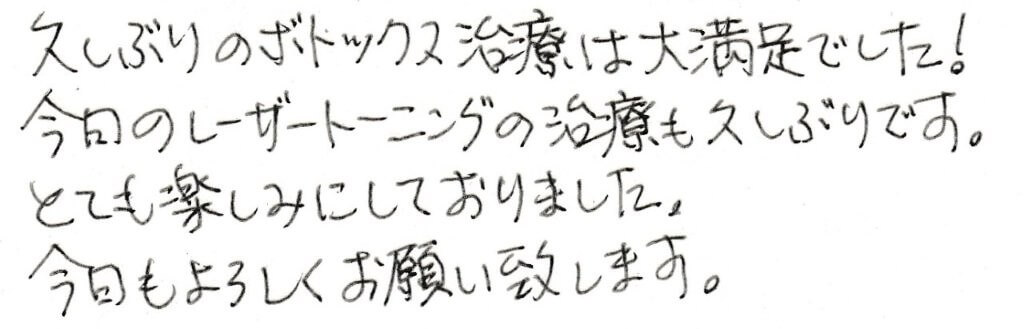 久しぶりのボトックス治療は大満足でした!
今日のレーザートーニングの治療も久しぶりです。
とても楽しみにしておりました。
今日もよろしくお願い致します。